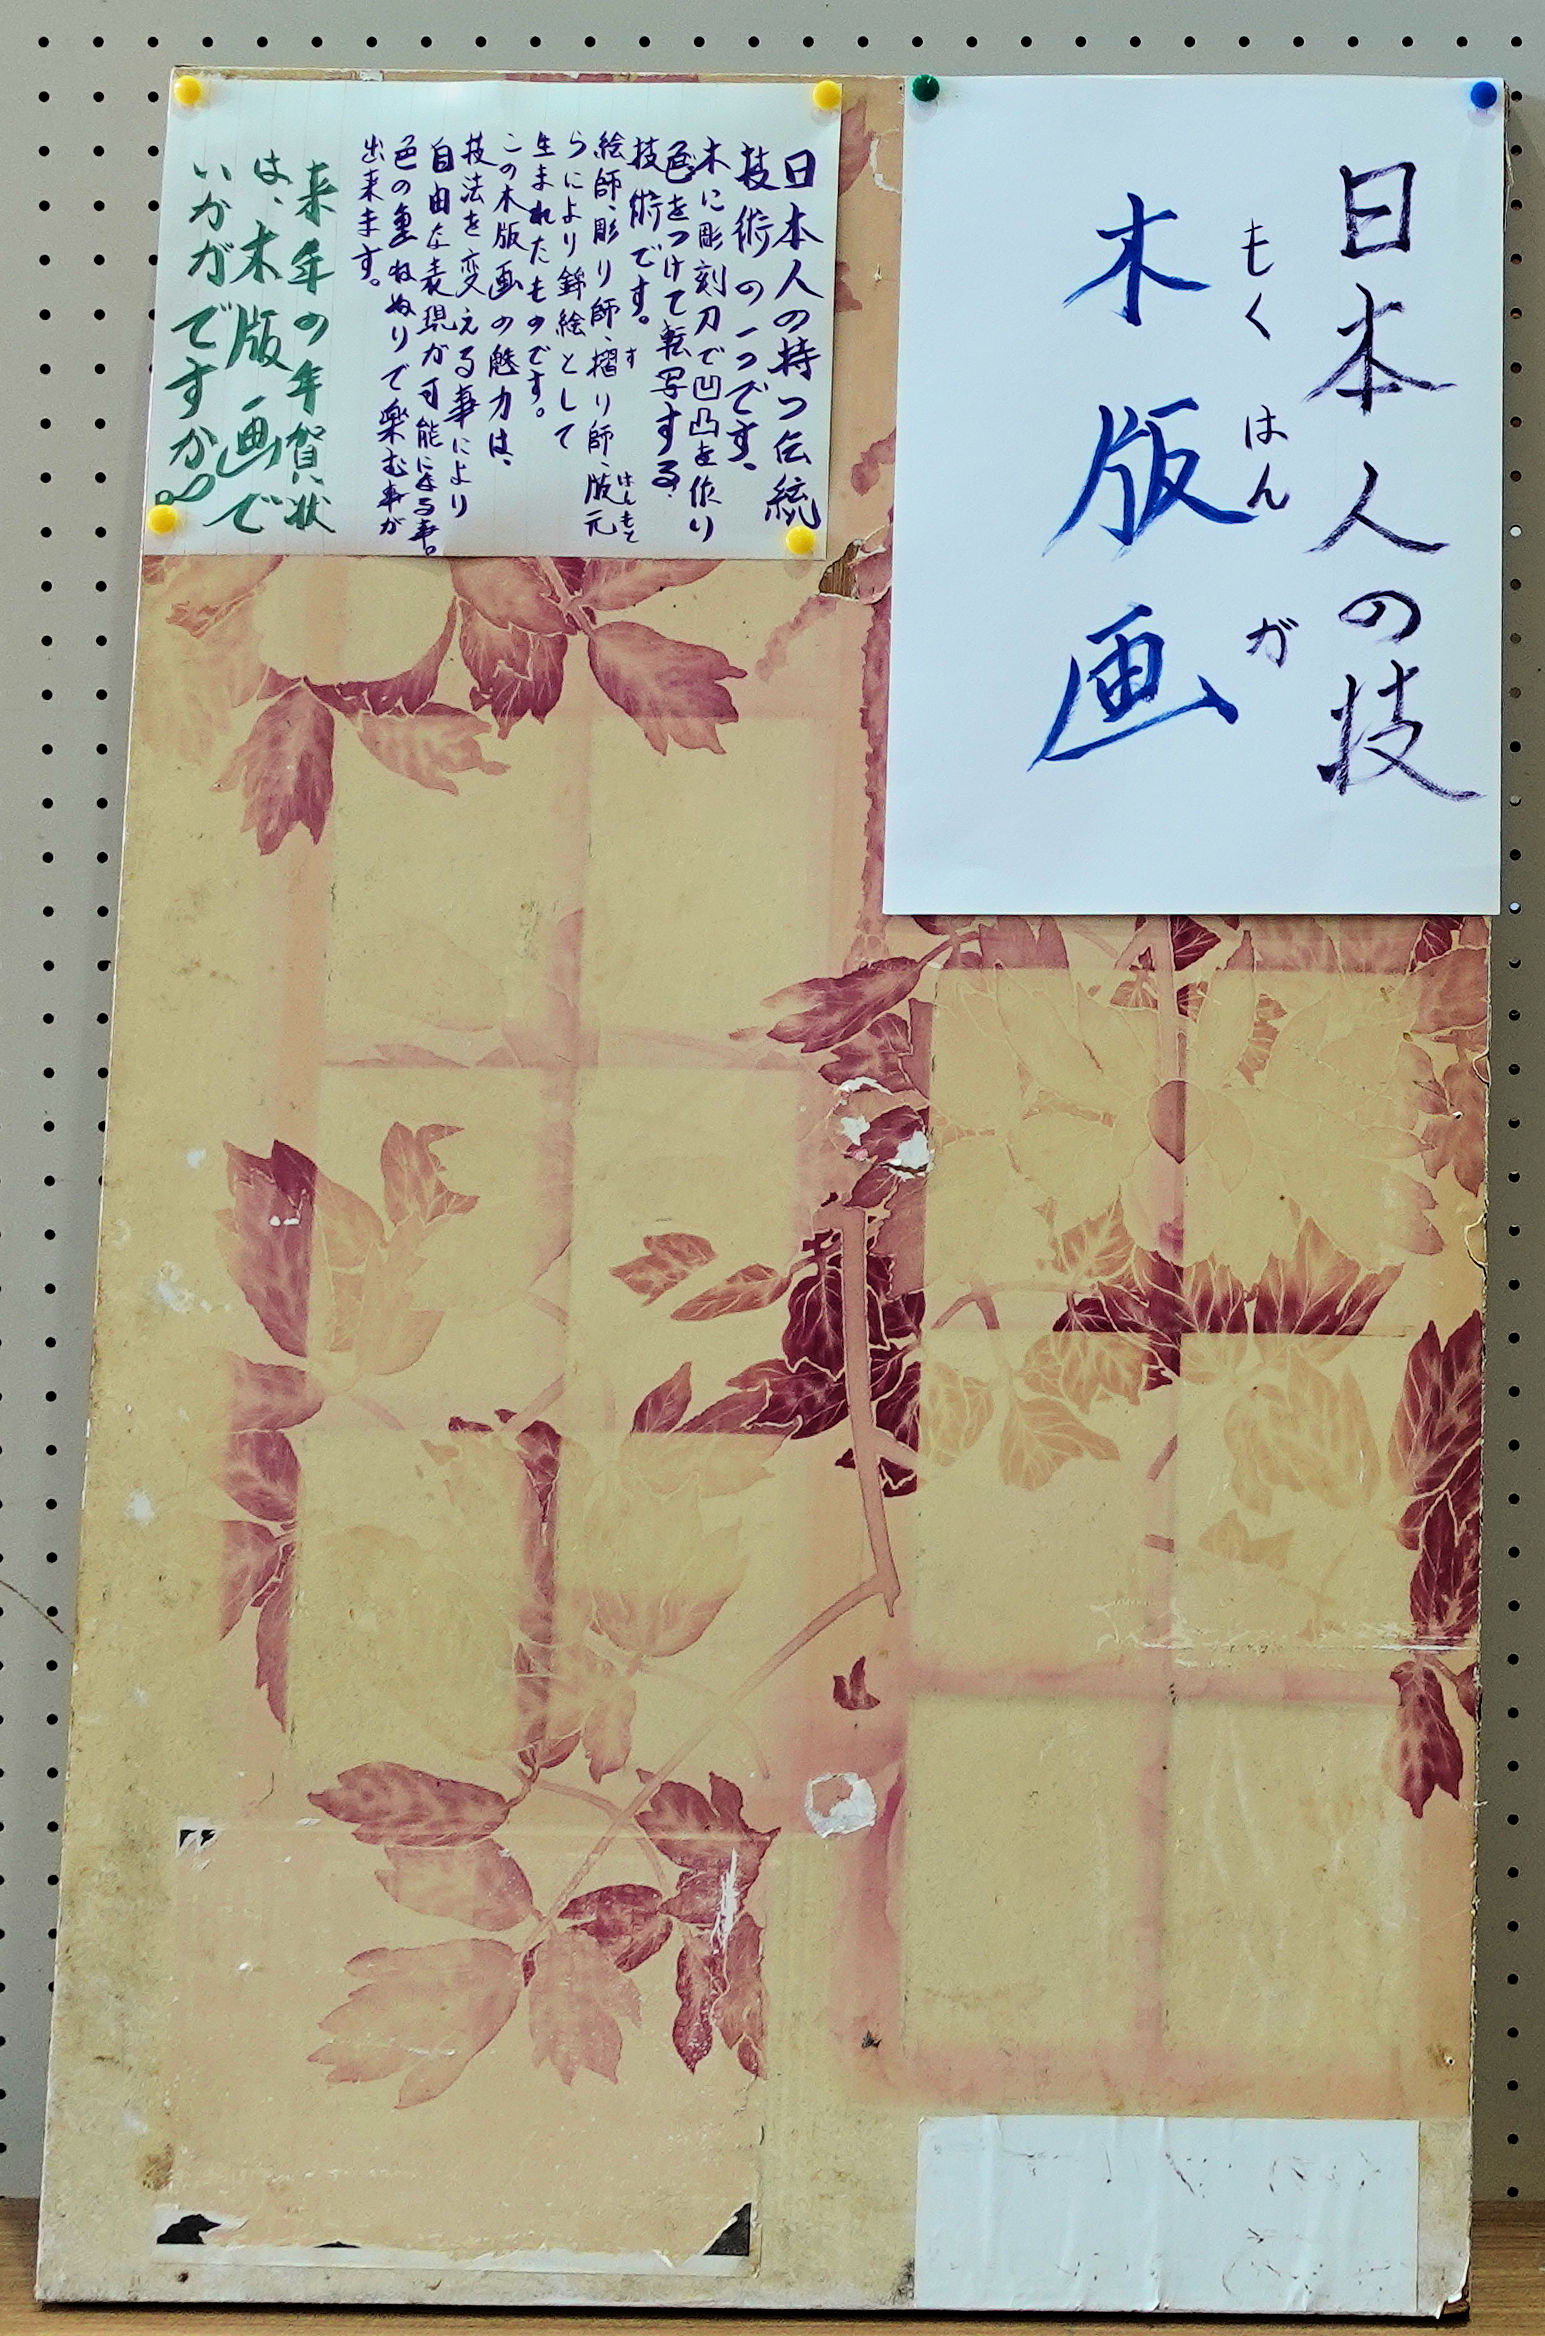 日本人の技
もくはんが
木版画
日本人の持つ伝統
技術の一つです。
木に彫刻刀で凹凸を作り
色をつけて転写する
技術です。
す
はんもと
絵師、彫り師、摺り師、版元
らにより錦絵として
生まれたものです。
この木版画の魅力は、
技法を変える事により
自由な表現が可能になる事。
色の重ねぬりで楽む事が
出来ます。
来年の年賀状
は、木版画で
いかがですか